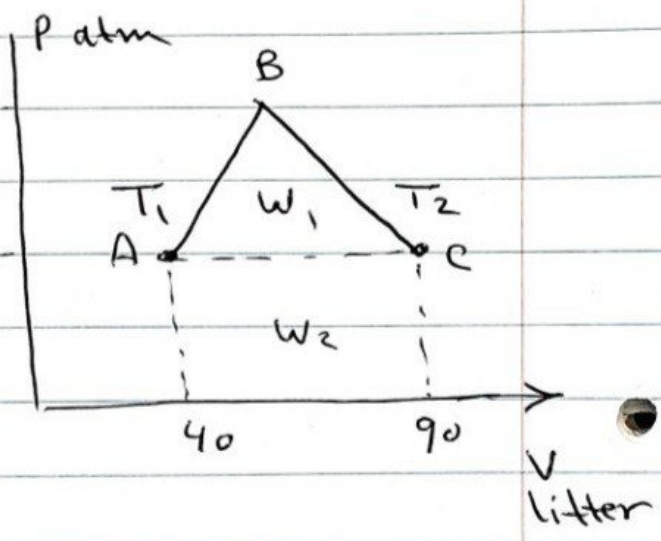 P atm
B
T₁ W₁ T₂
A C
W₂
40 90
V
litter